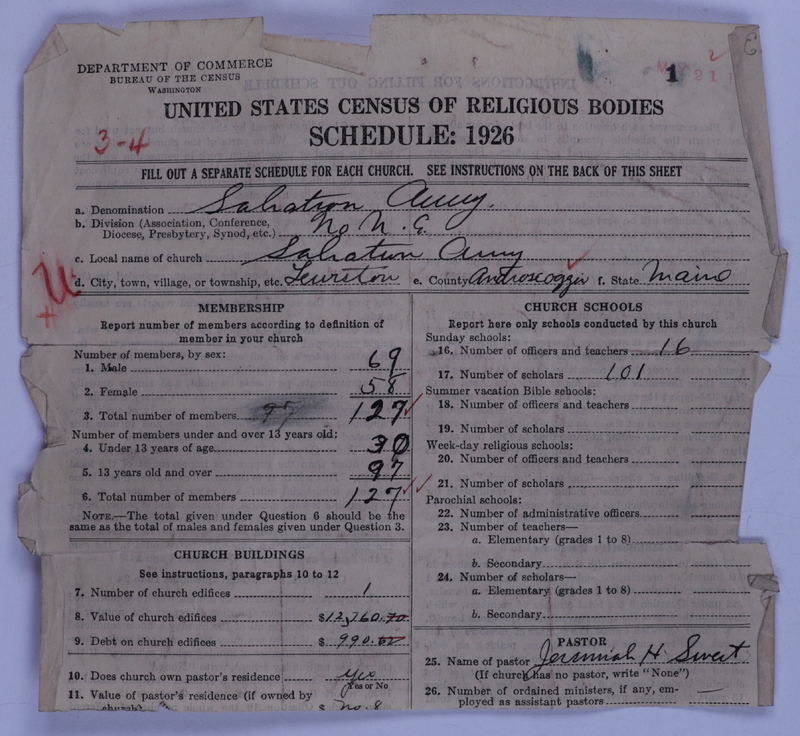 DEPARTMENT OF COMMERCE
BUREAU OF THE CENSUS
WASHINGTON
UNITED STATES CENSUS OF RELIGIOUS BODIES
SCHEDULE: 1926
3-4
FILL OUT A SEPARATE SCHEDULE FOR EACH CHURCH. SEE INSTRUCTIONS ON THE BACK OF THIS SHEET
a. Denomination Salvation Army.
b. Division (Association, Conference,
Diocese, Presbytery, Synod, etc.) No N. E.
c. Local name of church Salvation Army
d. City, town, village, or township, etc. Lewiston e. County Androscoggin f. State Maine
MEMBERSHIP
Report number of members according to definition of
member in your church
Number of members, by sex:
1. Male 69
2. Female 58
3. Total number of members 97 127
Number of members under and over 13 years old:
4. Under 13 years of age 30
5. 13 years old and over 97
6. Total number of members 127
NOTE.—The total given under Question 6 should be the
same as the total of males and females given under Question 3.
CHURCH BUILDINGS
See instructions, paragraphs 10 to 12
7. Number of church edifices 1
8. Value of church edifices $12,760.70
9. Debt on church edifices $ 990.00
10. Does church own pastor's residence yes
Yes or No
11. Value of pastor's residence (if owned by
church) $
CHURCH SCHOOLS
Report here only schools conducted by this church
Sunday schools:
16. Number of officers and teachers 16
17. Number of scholars 101
Summer vacation Bible schools:
18. Number of officers and teachers
19. Number of scholars
Week-day religious schools:
20. Number of officers and teachers
21. Number of scholars
Parochial schools:
22. Number of administrative officers
23. Number of teachers—
a. Elementary (grades 1 to 8)
b. Secondary
24. Number of scholars—
a. Elementary (grades 1 to 8)
b. Secondary
PASTOR
25. Name of pastor Jeremiah H. Sweet
(If church has no pastor, write "None")
26. Number of ordained ministers, if any, em-
ployed as assistant pastors —